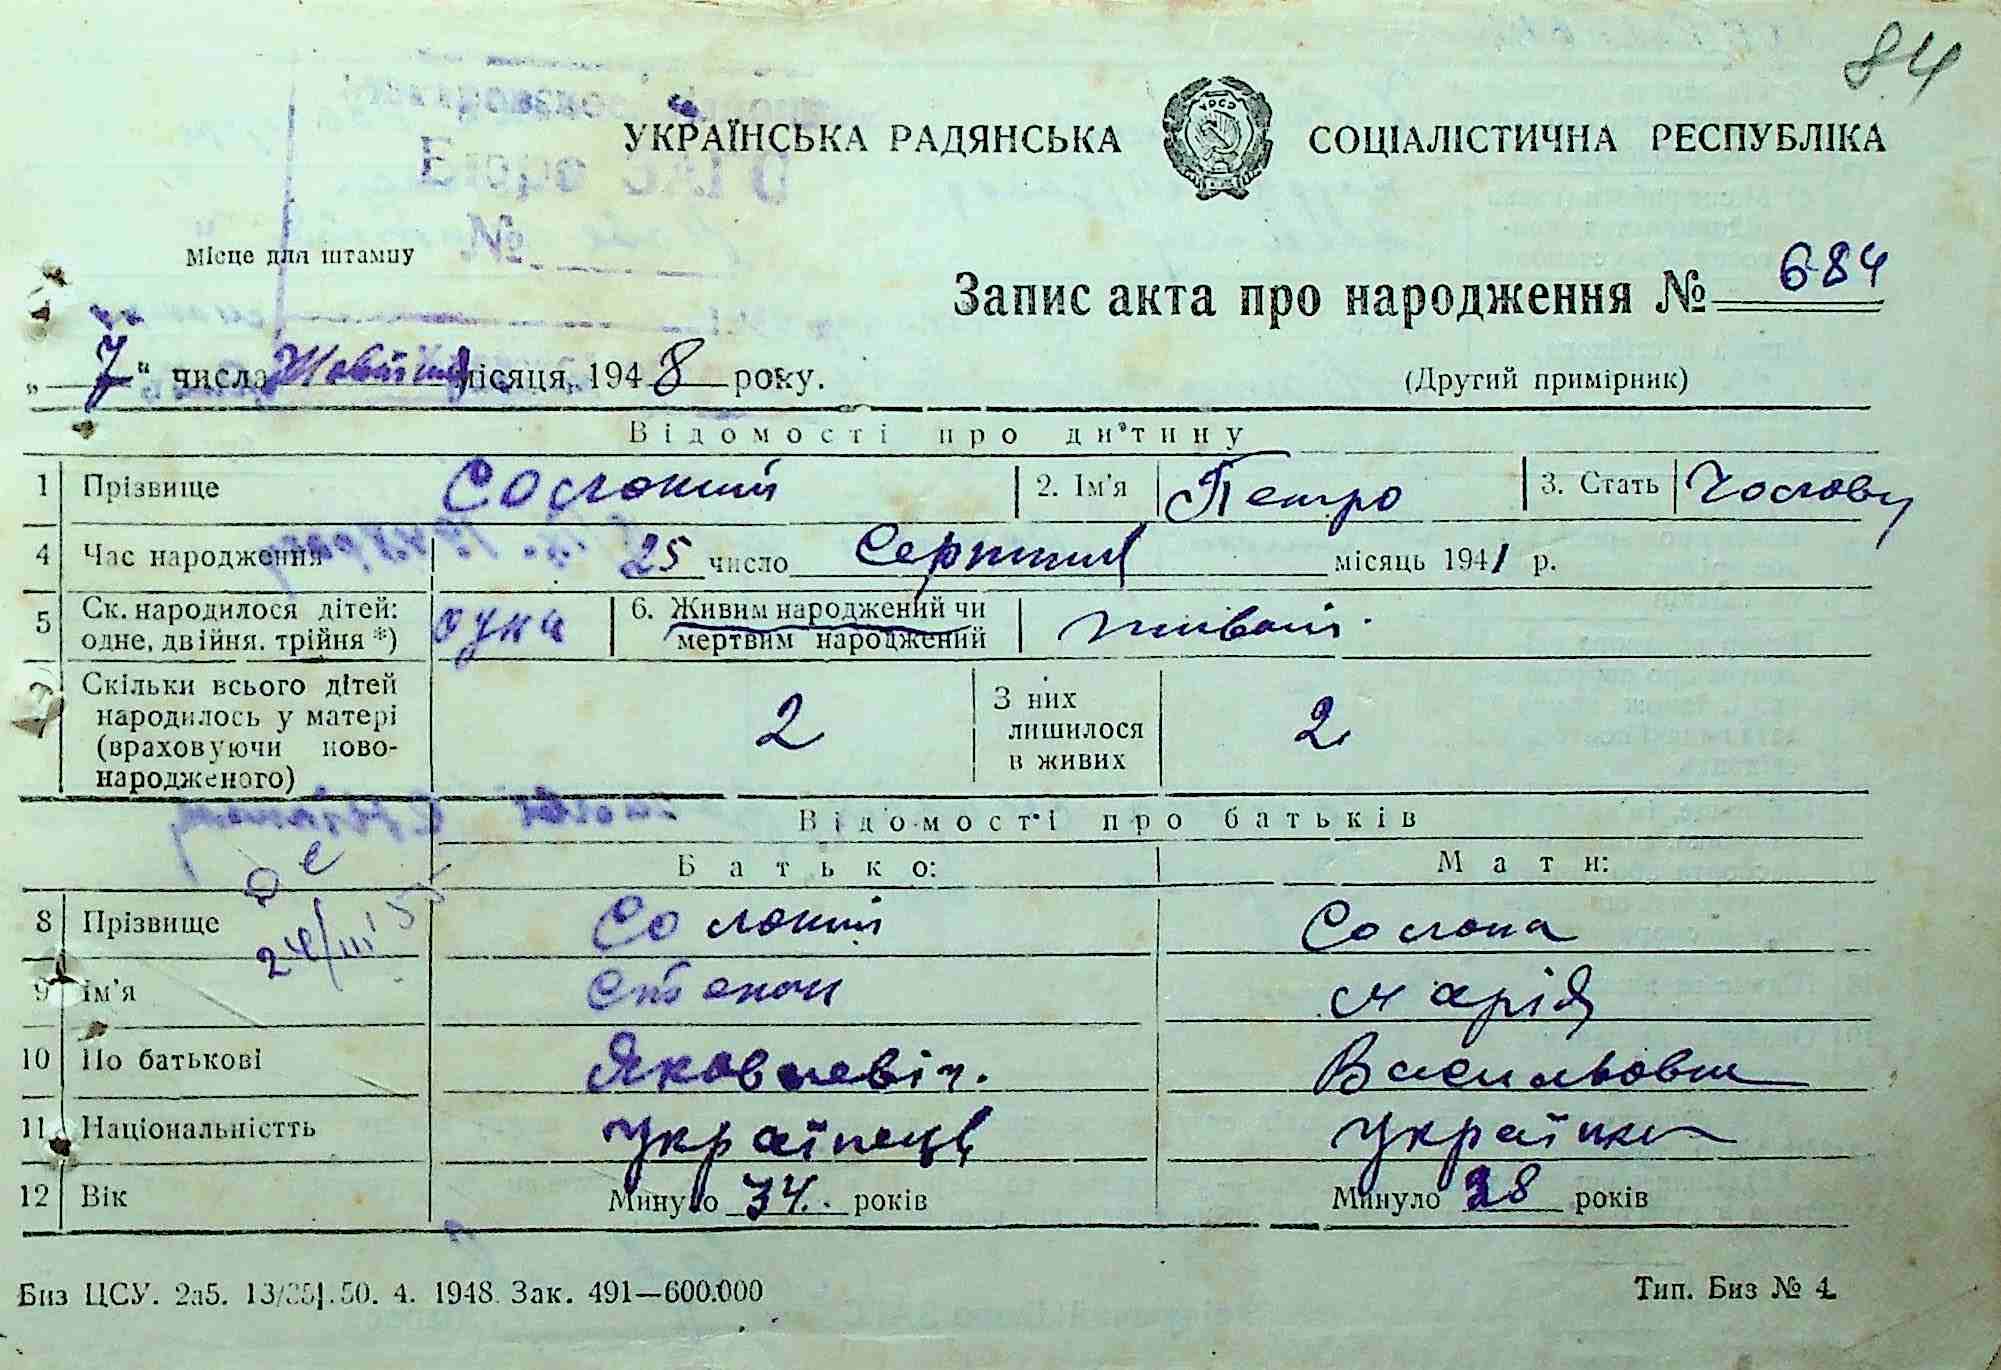 84
УКРАЇНСЬКА РАДЯНСЬКА СОЦІАЛІСТИЧНА РЕСПУБЛІКА
УРСР
Бюро ЗАГС
№
Місце для штампу
Запис акта про народження № 684
„ 7 “ числа Жовтня місяця, 1948 року.
(Другий примірник)
Відомості про дитину
1 Прізвище Солокий 2. Ім'я Петро 3. Стать Чолову
4 Час народження 25 число Серпня місяць 1941 р.
5 Ск. народилося дітей: одне, двійня, трійня *) одна 6. Живим народжений чи мертвим народжений живий.
7 Скільки всього дітей народилось у матері (враховуючи новонародженого) 2 З них лишилося в живих 2
Відомості про батьків
Батько: Мати:
24/III 55
8 Прізвище Солокий Солона
9 Ім'я Степан Марія
10 По батькові Яковлевіч. Васильовна
11 Національністть Українець Українка
12 Вік Минуло 34. років Минуло 28 років
Биз ЦСУ. 2а5. 13/35|.50. 4. 1948. Зак. 491—600.000
Тип. Биз № 4.